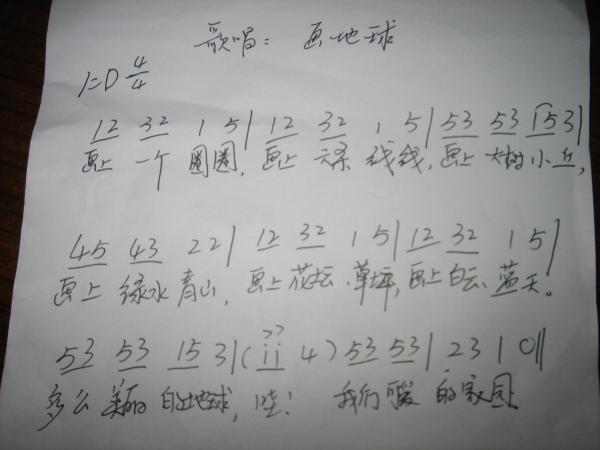 歌唱: 画地球
1=D 4/4
12 32 1 5 | 12 32 1 5 | 53 53 153 |
画上 一个 圈圈, 画上 六条 线线, 画上 大树小丘,
45 43 22 | 12 32 1 5 | 12 32 1 5 |
画上 绿水青山, 画上花坛、草坪, 画上白云、蓝天。
53 53 15 3 | (ii 4) 53 53 | 23 1 0 ||
多么 美丽 的地球, 哇! 我们 可爱 的家园